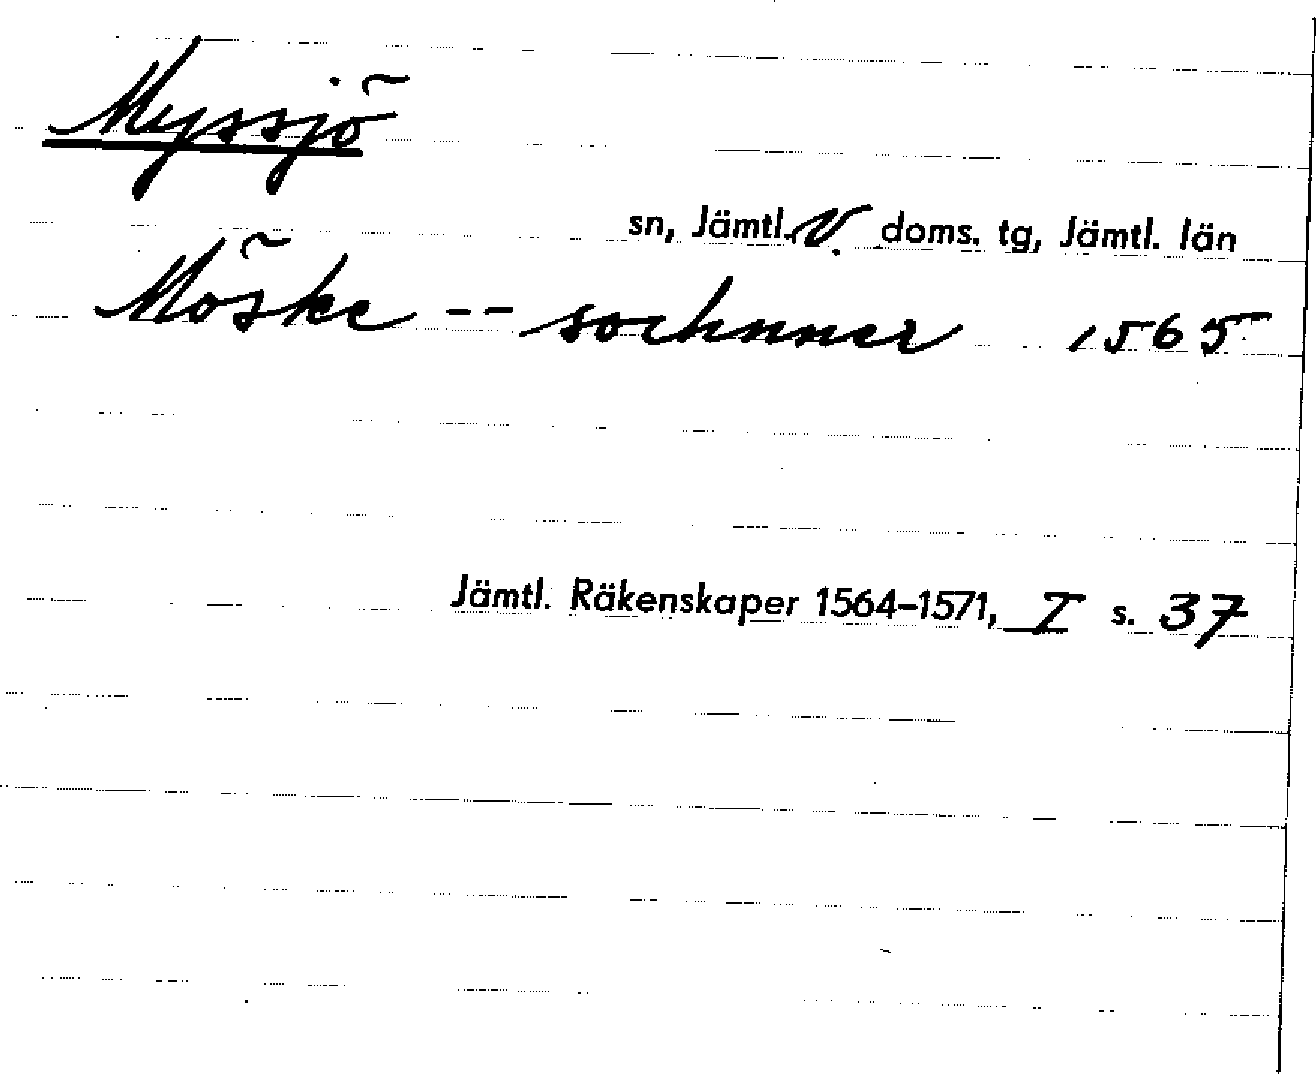 Myssjö
sn, Jämtl. V. doms. tg, Jämtl. län
Möske -- sochnner 1565
Jämtl. Räkenskaper 1564-1571, I s. 37